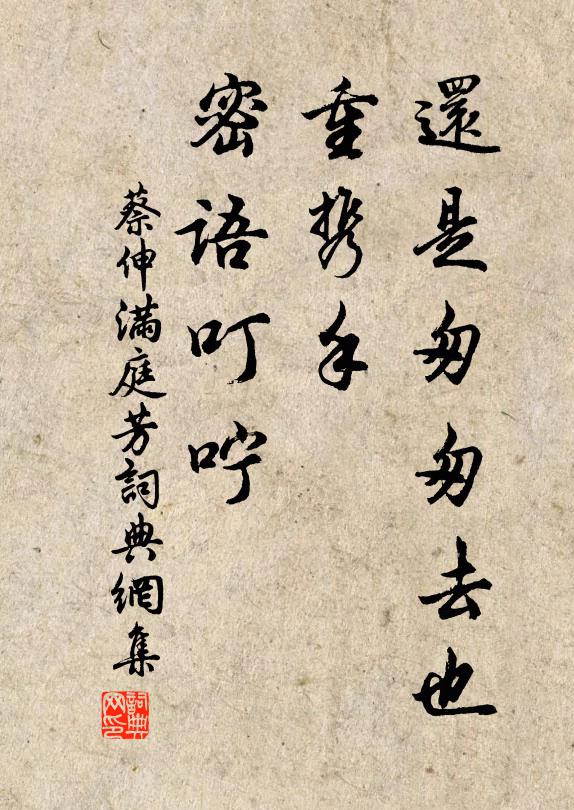 還是匆匆去也
重携手
密語叮嚀
蔡伸滿庭芳詞典網集
詞典网印